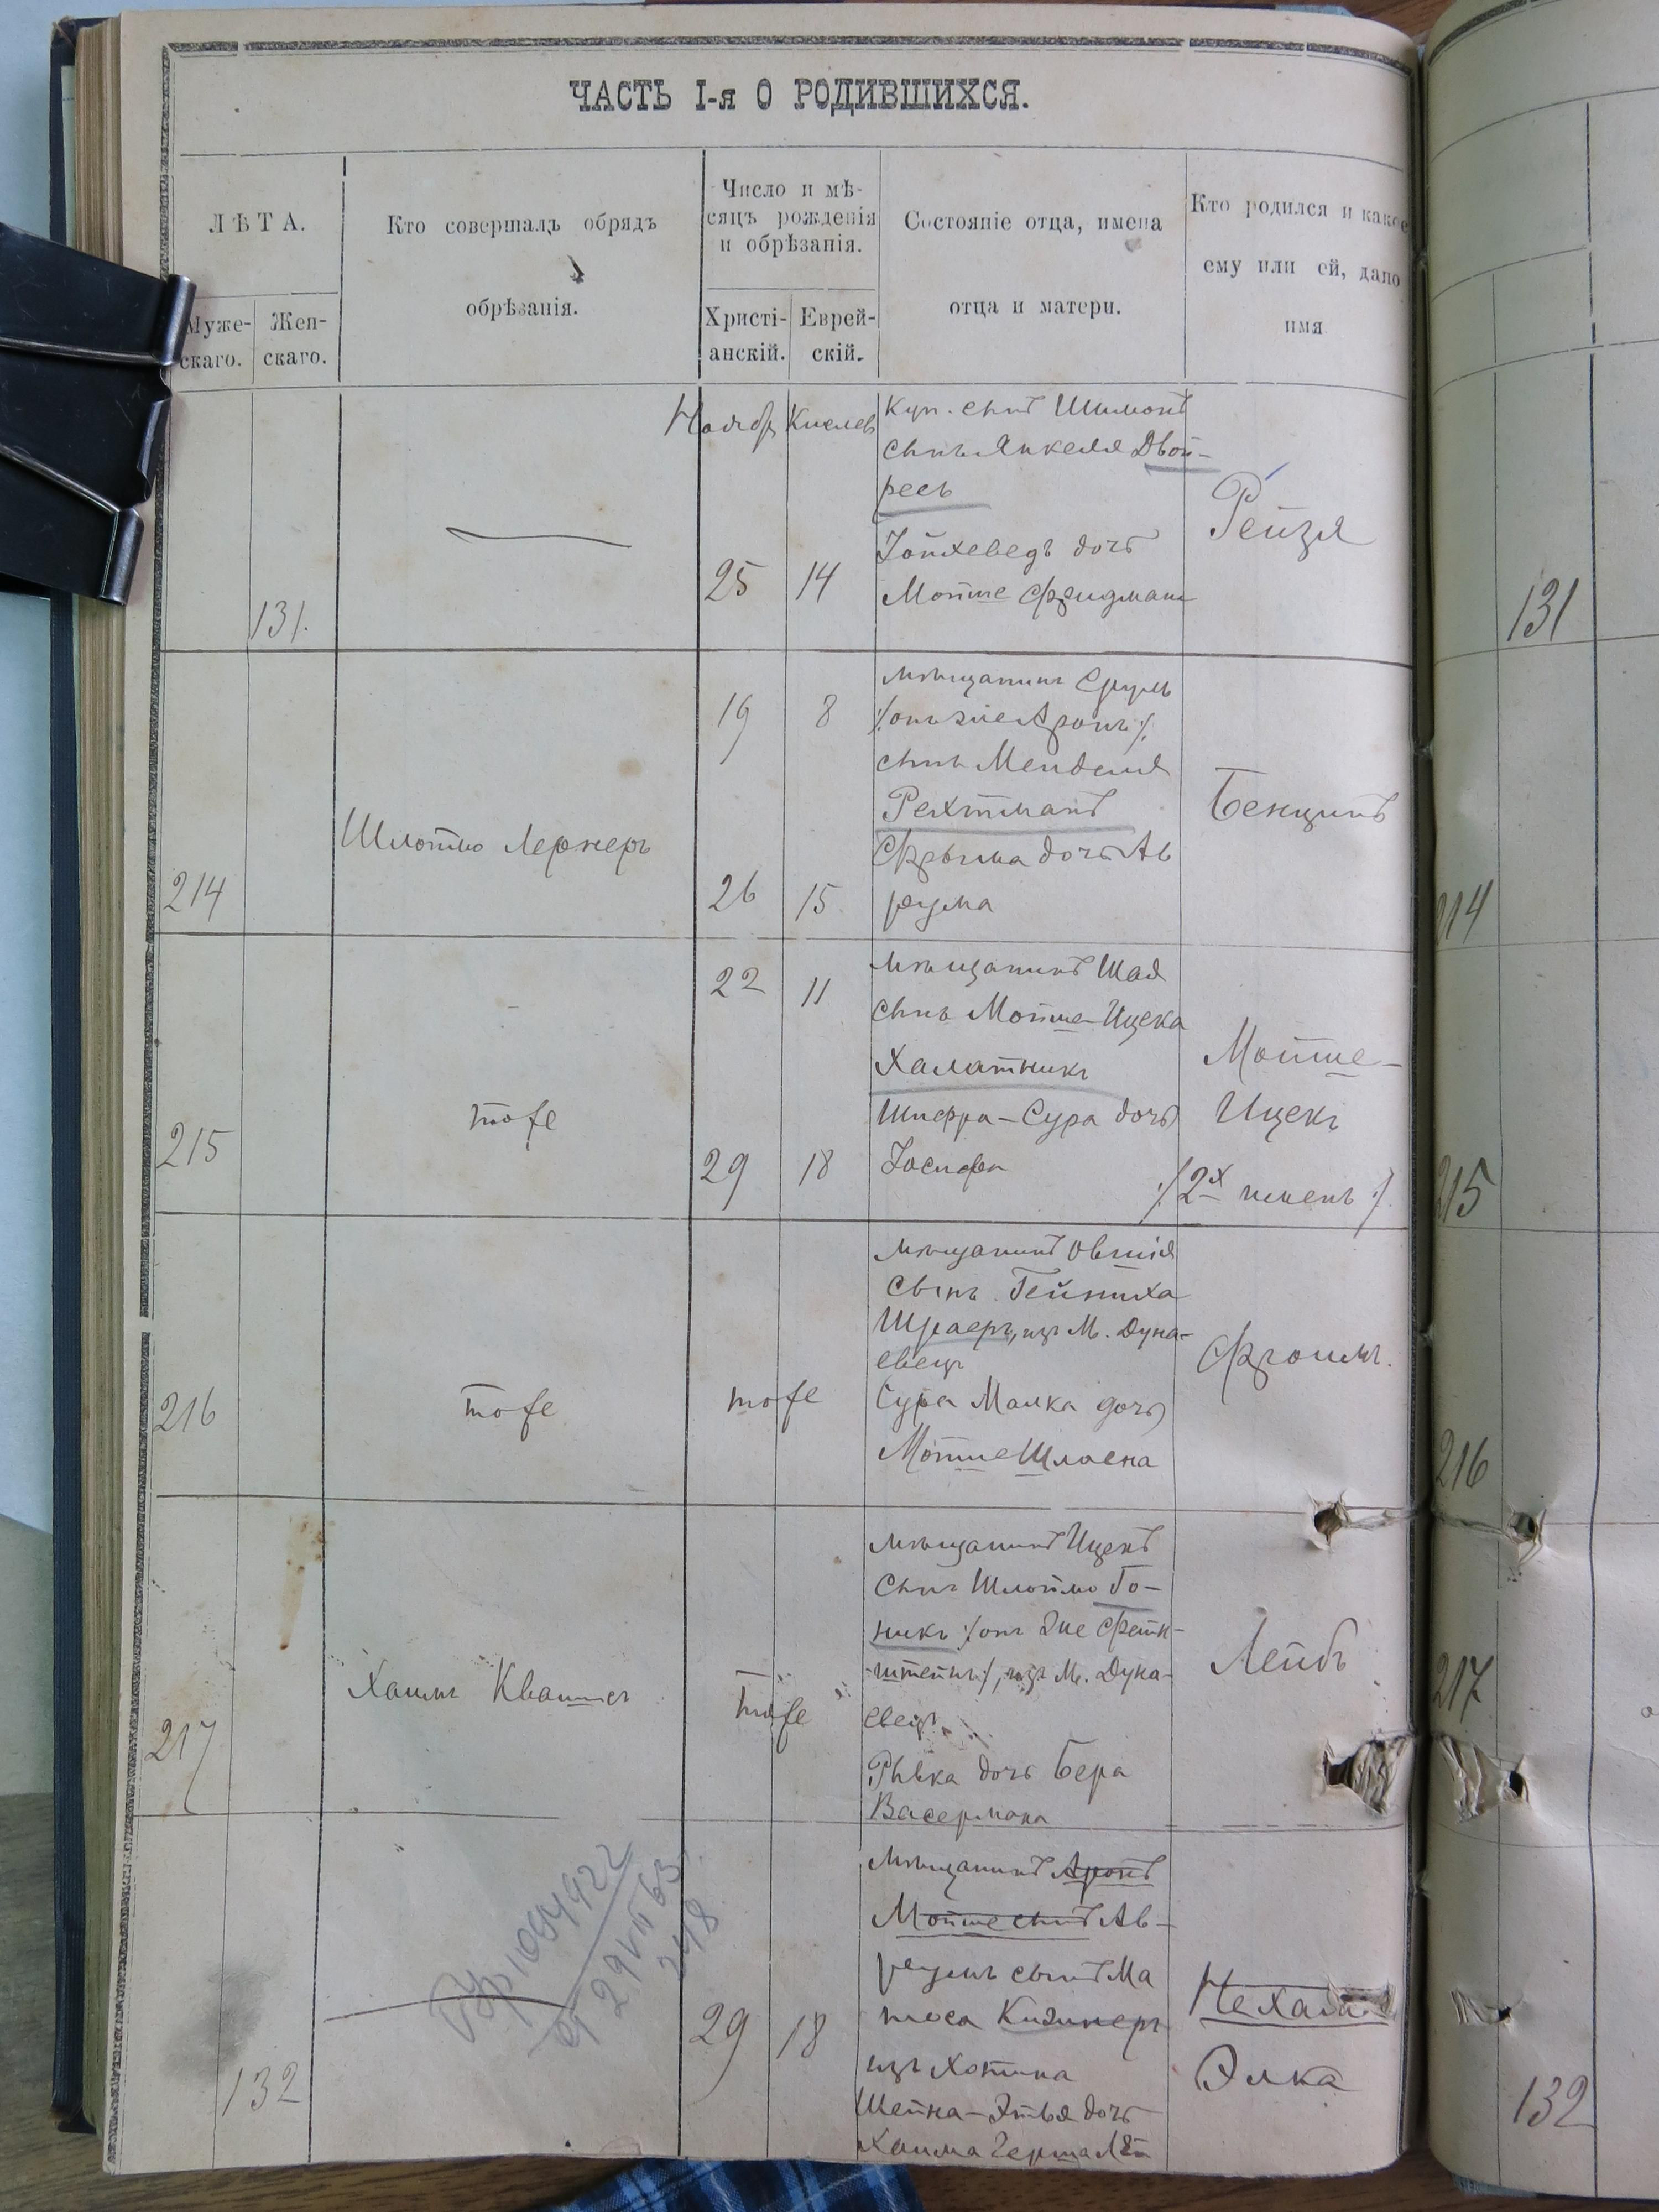 ЧАСТЬ I-я О РОДИВШИХСЯ.
ЛѢТА.
Муже-
скаго.
Жен-
скаго.
Кто совершалъ обрядъ
обрѣзанія.
Число и мѣ-
сяцъ рожденія
и обрѣзанія.
Христі-
анскій.
Еврей-
скій.
Состояніе отца, имена
отца и матери.
Кто родился и какое
ему или ей, дано
имя
131.
Ноябр
25
Кислев
14
Куп. сынъ Шимонъ
сынъ Янкеля Двой-
ресъ
Іойхеведъ дочь
Мойше Фридмана
Рейзя
131
214
Шлоймо Лернеръ
19
8
26
15
мѣщанинъ Сруль
/: онъ же Аронъ :/
сынъ Менделя
Рехтманъ
Фрыма дочь Ав
рума
Бенцинъ
214
215
тоже
22
11
29
18
мѣщанинъ Шая
сынъ Мойше-Ицека
Халатникъ
Шифра-Сура дочь
Іосифа
Мойше-
Ицекъ
/: 2х именъ :/
215
216
тоже
тоже
мѣщанинъ Овшія
сынъ Гейниха
изъ М. Дуна-
евецъ
Сура Малка дочь
Мойше
Фроимъ.
216
217
Хаимъ
тоже
мѣщанинъ Ицекъ
сынъ Шлоймо Го-
никъ /: онъ же
штейнъ :/, изъ М. Дуна-
евецъ
Рывка дочь Бера
Васермана
Лейбъ
217
132
29
18
мѣщанинъ Аронъ
Мойше сынъ Ав-
румъ сынъ Ма
теса
изъ Хотина
Шейна-Этья дочь
Хаима Герша
Нехама
Элка
132